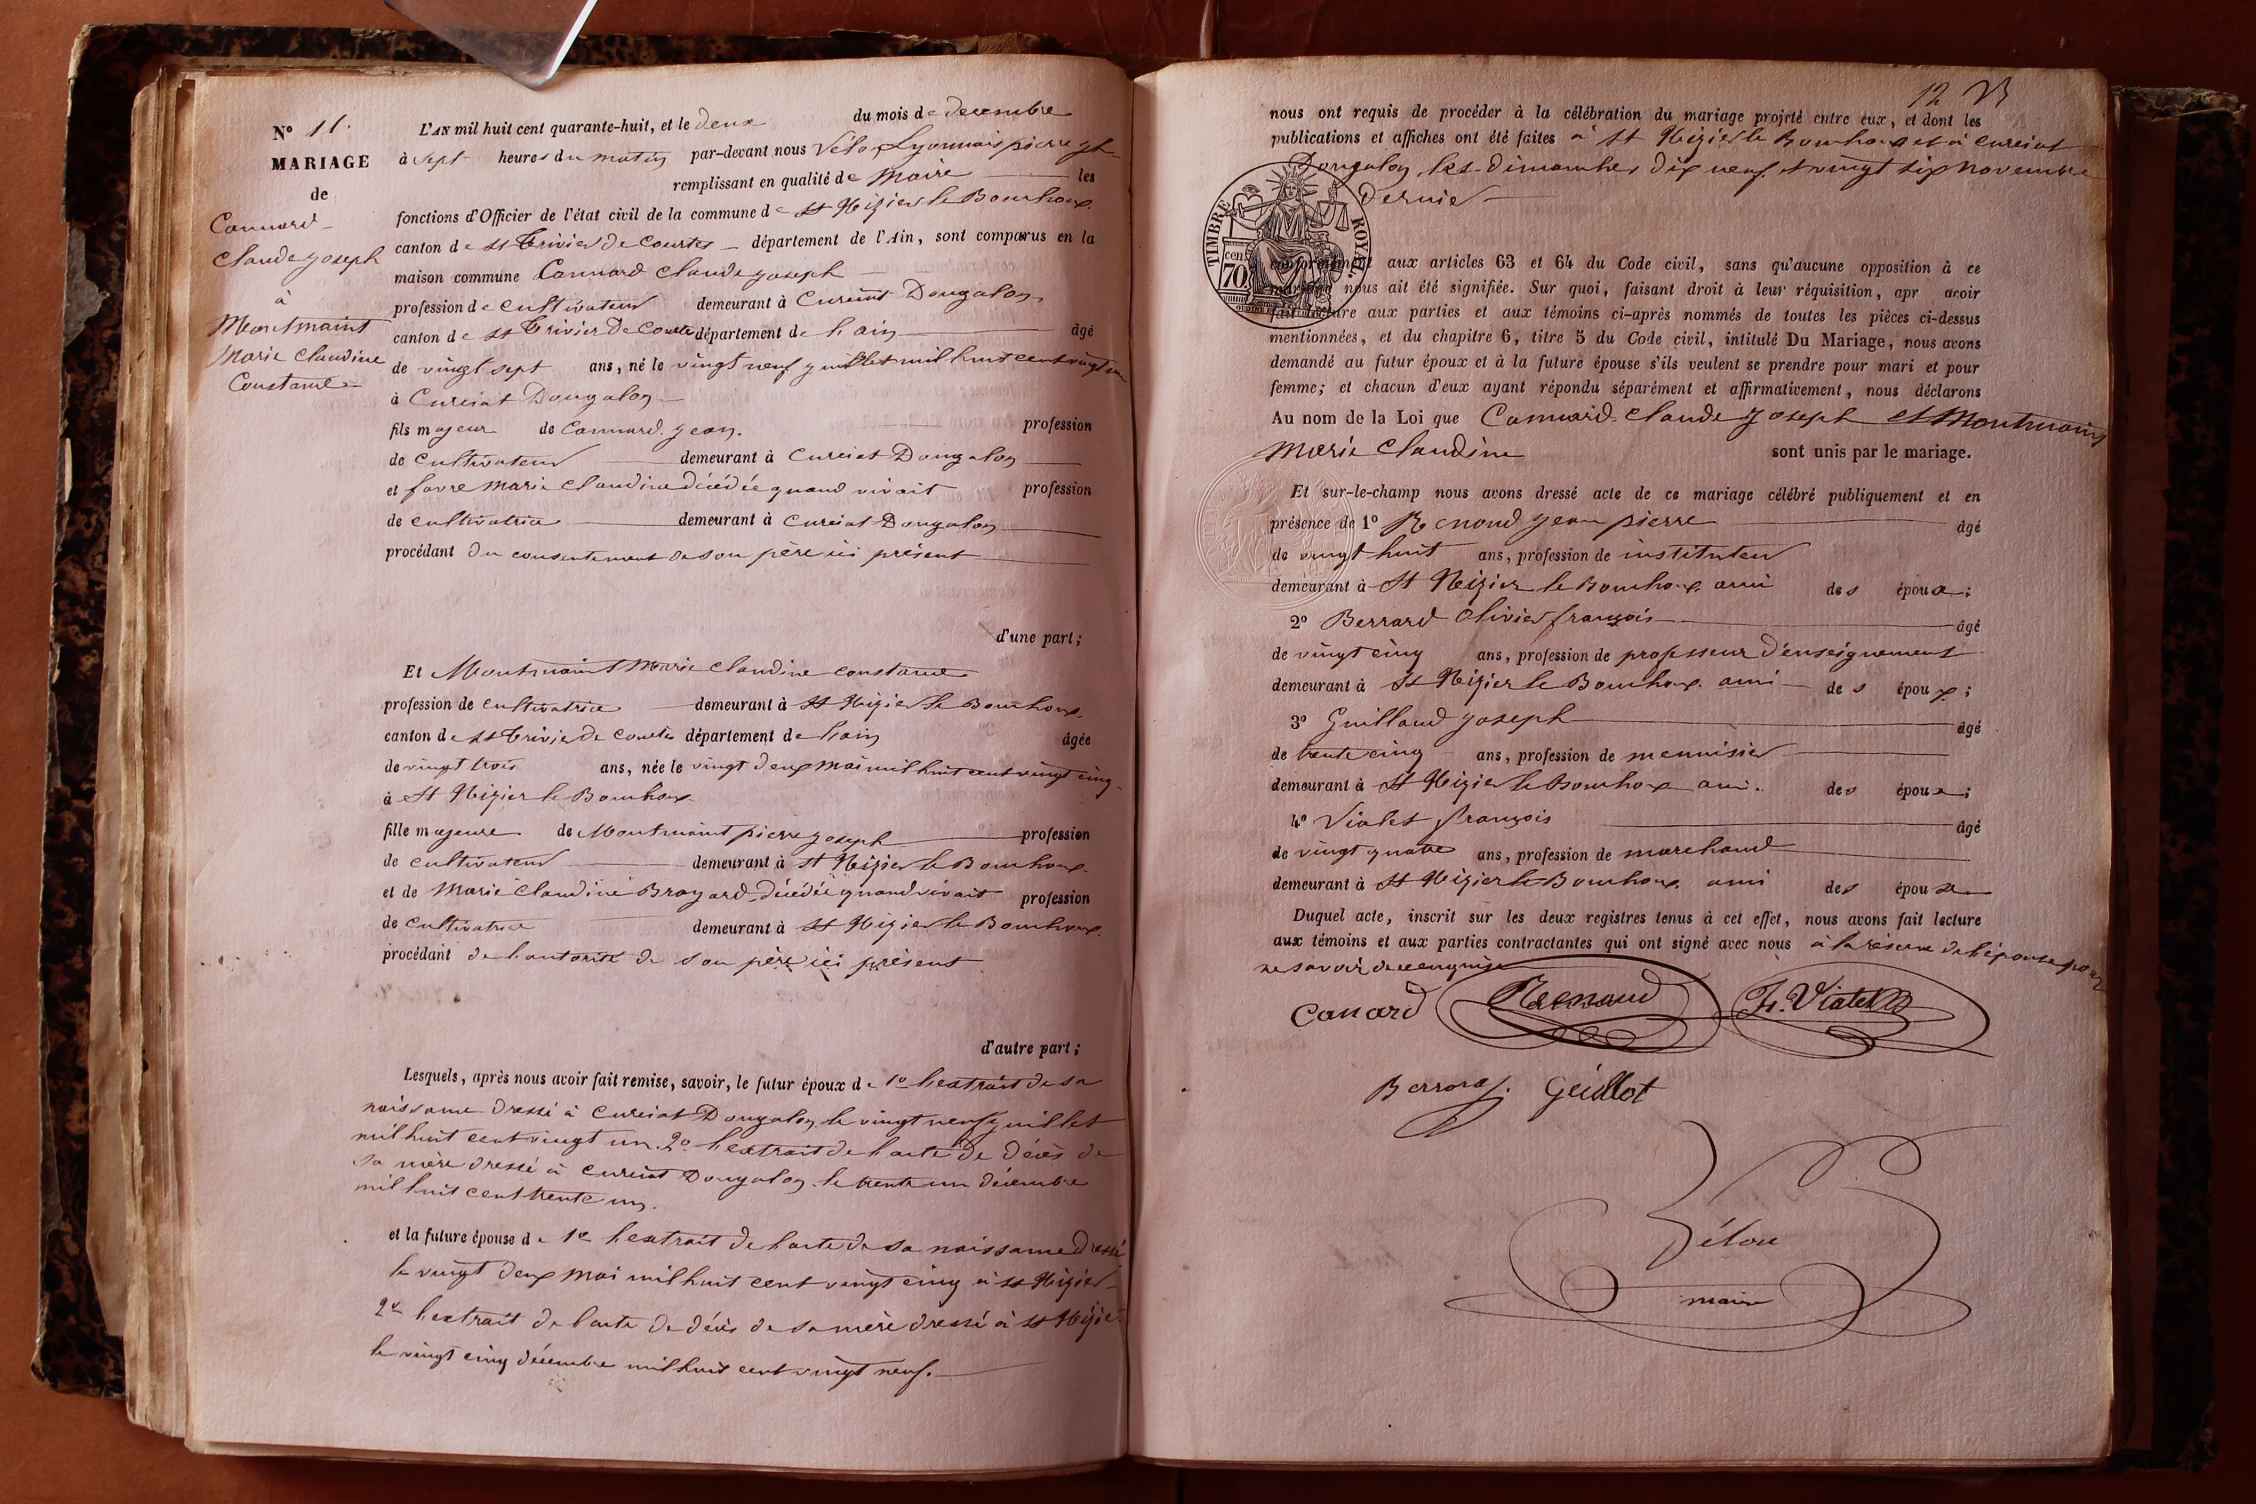 N° 11.
MARIAGE
de
Cannard
Claude Joseph
à
Montmaint
Marie Claudine
Constance
L'AN mil huit cent quarante-huit, et le deux du mois de decembre
à sept heures du matin par-devant nous Vélon Lyonnais pierre
remplissant en qualité de Maire les
fonctions d'Officier de l'état civil de la commune de St Nizier le Bouchoux.
canton de St Trivier de Courtes département de l'Ain, sont comparus en la
maison commune Cannard Claude Joseph
profession de cultivateur demeurant à Curciat Dongalon
canton de St Trivier De Courtes département de l'ain âgé
de vingt sept ans, né le vingt neuf juillet mil huit cent vingt un
à Curciat Dongalon
fils majeur de Cannard Jean. profession
de cultivateur demeurant à Curciat Dongalon
et favre Marie Claudine décédée quand vivait profession
de cultivatrice demeurant à Curciat Dongalon
procédant du consentement de son père ici présent
d'une part;
Et Montmaint Marie Claudine constance
profession de cultivatrice demeurant à St Nizier le Bouchoux.
canton de St Trivier de Courtes département de l'ain âgée
de vingt trois ans, née le vingt deux mai mil huit cent vingt cinq
à St Nizier le Bouchoux
fille majeure de Montmaint pierre joseph profession
de cultivateur demeurant à St Nizier le Bouchoux.
et de Marie Claudine Brayard décédée quand vivait profession
de cultivatrice demeurant à St Nizier le Bouchoux.
procédant de l'autorité de son père ici présent
d'autre part;
Lesquels, après nous avoir fait remise, savoir, le futur époux de 1° l'extrait de sa
naissance dressé à Curciat Dongalon le vingt neuf juillet
mil huit cent vingt un. 2° l'extrait de l'acte de décès de
sa mère dressé à Curciat Dongalon le trente un décembre
mil huit cent trente un.
et la future épouse de 1° l'extrait de l'acte de sa naissance dressé
le vingt deux mai mil huit cent vingt cinq à St Nizier
2° l'extrait de l'acte de décès de sa mère dressé à St Nizier
le vingt cinq décembre mil huit cent vingt neuf.
12
nous ont requis de procéder à la célébration du mariage projeté entre eux, et dont les
publications et affiches ont été faites à St Nizier le Bouchoux et à Curciat
Dongalon, les Dimanches dix neuf et vingt six novembre
dernier
TIMBRE ROYAL.
cen. 70.
conformément aux articles 63 et 64 du Code civil, sans qu'aucune opposition à ce
mariage nous ait été signifiée. Sur quoi, faisant droit à leur réquisition, apr avoir
fait lecture aux parties et aux témoins ci-après nommés de toutes les pièces ci-dessus
mentionnées, et du chapitre 6, titre 5 du Code civil, intitulé Du Mariage, nous avons
demandé au futur époux et à la future épouse s'ils veulent se prendre pour mari et pour
femme; et chacun d'eux ayant répondu séparément et affirmativement, nous déclarons
Au nom de la Loi que Cannard Claude Joseph et Montmaint
Marie Claudine sont unis par le mariage.
Et sur-le-champ nous avons dressé acte de ce mariage célébré publiquement et en
présence de 1° Renoud Jean pierre âgé
de vingt huit ans, profession de instituteur
demeurant à St Nizier le Bouchoux ami des époux;
2° Berrard Olivier françois âgé
de vingt cinq ans, profession de professeur d'enseignement
demeurant à St Nizier le Bouchoux ami des époux;
3° Guilland Joseph âgé
de trente cinq ans, profession de menuisier
demeurant à St Nizier le Bouchoux ami. des époux;
4° Vialet françois âgé
de vingt quatre ans, profession de marchand
demeurant à St Nizier le Bouchoux ami des époux
Duquel acte, inscrit sur les deux registres tenus à cet effet, nous avons fait lecture
aux témoins et aux parties contractantes qui ont signé avec nous à la réserve de l'épouse pour
ne savoir de ce enquise
Canard Renoud F. Vialet
Berrard f. Geillot
Vélon
maire